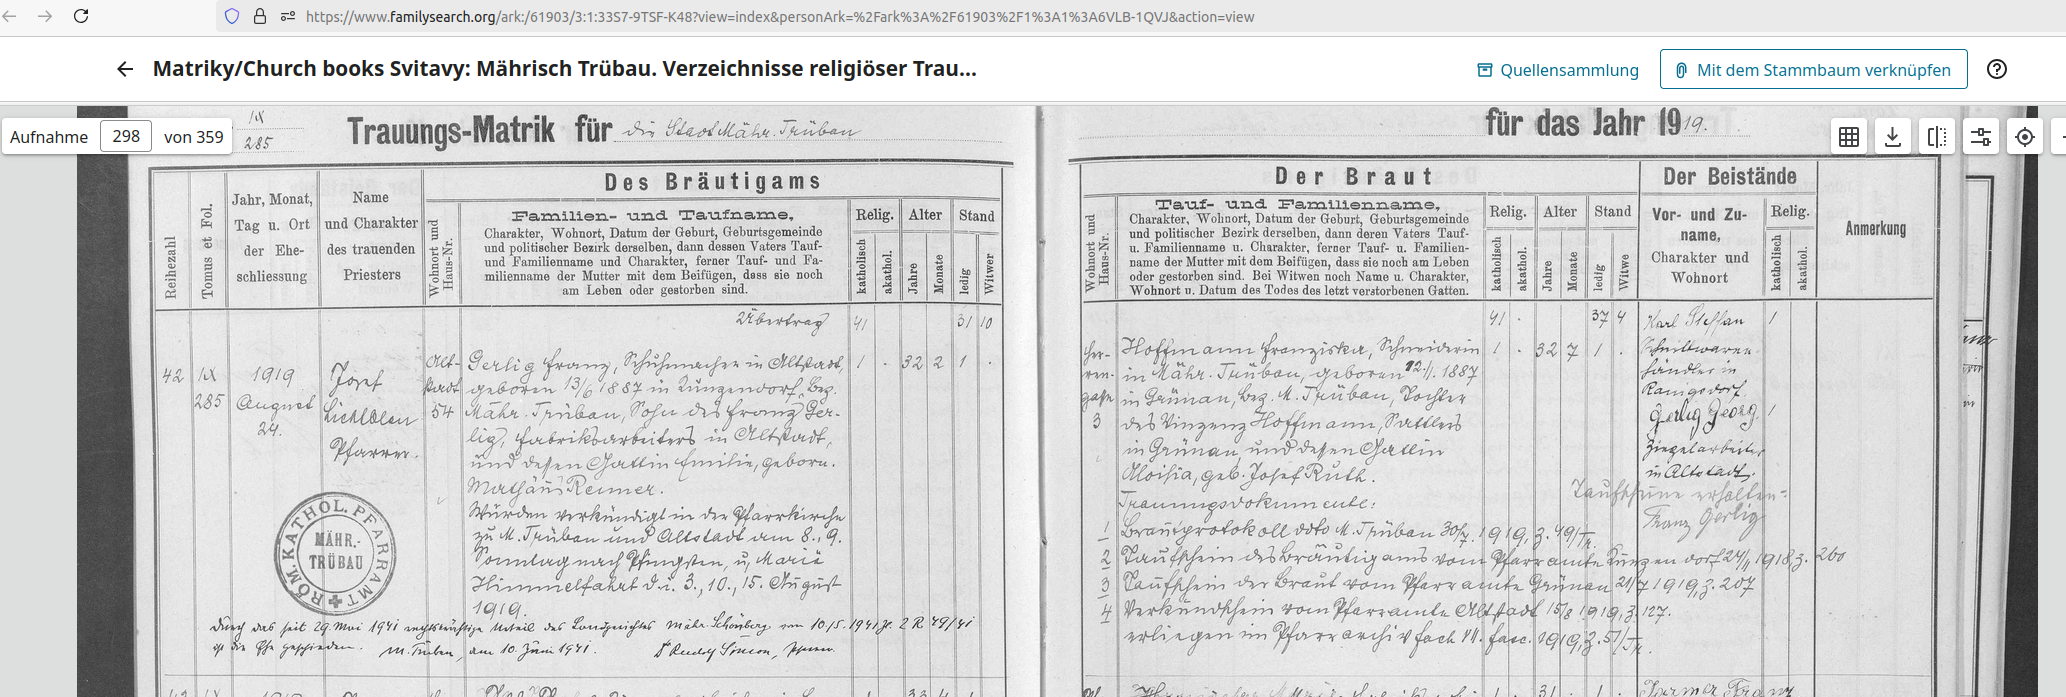 https://www.familysearch.org/ark:/61903/3:1:33S7-9TSF-K48?view=index&personArk=%2Fark%3A%2F61903%2F1%3A1%3A6VLB-1QVJ&action=view
Matriky/Church books Svitavy: Mährisch Trübau. Verzeichnisse religiöser Trau...
Quellensammlung
Mit dem Stammbaum verknüpfen
Aufnahme 298 von 359
IX
285
Trauungs-Matrik für die Stadt Mähr. Trübau
für das Jahr 1919.
Reihezahl
Tomus et Fol.
Jahr, Monat,
Tag u. Ort
der Ehe-
schliessung
Name
und Charakter
des trauenden
Priesters
Des Bräutigams
Wohnort und
Haus-Nr.
Familien- und Taufname,
Charakter, Wohnort, Datum der Geburt, Geburtsgemeinde
und politischer Bezirk derselben, dann dessen Vaters Tauf-
und Familienname und Charakter, ferner Tauf- u. Fa-
milienname der Mutter mit dem Beifügen, dass sie noch
am Leben oder gestorben sind.
Relig.
katholisch
akathol.
Alter
Jahre
Monate
Stand
ledig
Witwer
Der Braut
Wohnort und
Haus-Nr.
Tauf- und Familienname,
Charakter, Wohnort, Datum der Geburt, Geburtsgemeinde
und politischer Bezirk derselben, dann deren Vaters Tauf-
u. Familienname u. Charakter, ferner Tauf- u. Familien-
name der Mutter mit dem Beifügen, dass sie noch am Leben
oder gestorben sind. Bei Witwen noch Name u. Charakter,
Wohnort u. Datum des Todes des letzt verstorbenen Gatten.
Relig.
katholisch
akathol.
Alter
Jahre
Monate
Stand
ledig
Witwe
Der Beistände
Vor- und Zu-
name,
Charakter und
Wohnort
Relig.
katholisch
akathol.
Anmerkung
Übertrag 41 31 10
42
IX
285
1919
August
24.
Josef
Pfarrer.
Alt-
stadt
54
Gerlig Franz, Schuhmacher in Altstadt, 1 . 32 2 1 .
geboren 13/6 1887 in Kunzendorf, Bez.
Mähr. Trübau, Sohn des Franz Ger-
lig, Fabriksarbeiters in Altstadt,
und dessen Gattin Emilie, geborn.
Mathäus Reimer.
Wurden verkündigt in der Pfarrkirche
zu M. Trübau und Altstadt am 8., 9.
Sonntag nach Pfingsten, u. Mariä
Himmelfahrt d. i. 3., 10., 15. August
1919.
RÖM. KATHOL. PFARRAMT
MÄHR.-
TRÜBAU
Durch das seit 29. Mai 1941 rechtskräftige Urteil des Landgerichtes Mähr. Schönberg vom 10./5. 1941 Z. 2 R 49/41
ist die Ehe geschieden. M. Trübau, am 10. Juni 1941. Dr Rudolf Simon, Pfarrer.
41 . 37 4
Her-
ren-
gasse
3
Hoffmann Franziska, Schneiderin 1 . 32 7 1 .
in Mähr. Trübau, geboren 12./1. 1887
in Grünau, Bez. M. Trübau, Tochter
des Vinzenz Hoffmann, Sattlers
in Grünau, und dessen Gattin
Aloisia, geb. Josef Ruth.
Trauungsdokumente:
1 Brautprotokoll ddto M. Trübau 30/7. 1919, Z. 49/Tr.
2 Taufschein des Bräutigams vom Pfarramte Kunzendorf 24/1 1918, Z. 260
3 Taufschein der Braut vom Pfarramte Grünau 21/7 1919, Z. 207
4 Verkündschein vom Pfarramte Altstadt 15/8 1919, Z. 127.
erliegen im Pfarrarchiv Fach VII. Fasc. 1919, Z. 51/Tr.
Karl Steffan 1
Schnittwaren-
händler in
Ranigsdorf
Gerlig Georg 1
Ziegelarbeiter
in Altstadt.
Taufscheine erhalten:
Franz Gerlig